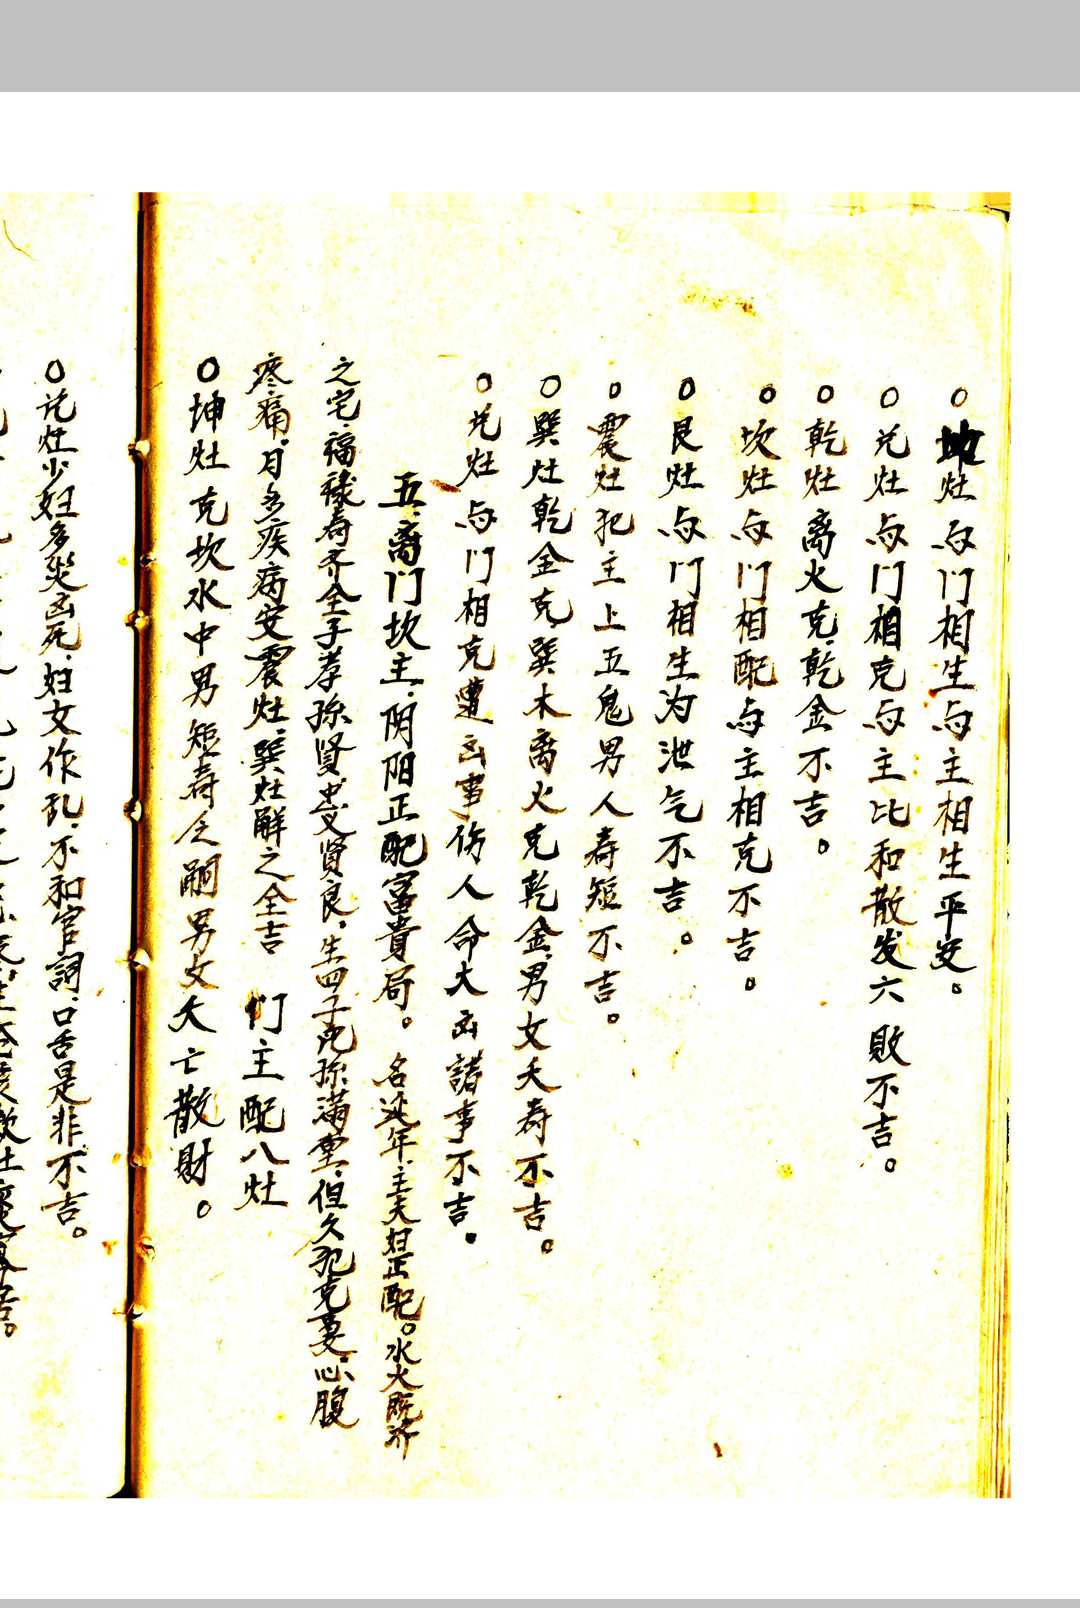 ○坤灶与门相生与主相生平安。
○兑灶与门相克与主比和散发六败不吉。
○乾灶离火克乾金不吉。
○坎灶与门相配与主相克不吉。
○艮灶与门相生为泄气不吉。
○震灶犯主上五鬼男人寿短不吉。
○巽灶乾金克巽木离火克乾金.男女夭寿不吉。
○兑灶与门相克遭凶事伤人命大凶諸事不吉.
五.离门坎主.阴阳正配富貴局。名延年.主夫妇正配。水火既济
之宅.福禄寿齐全子孝孙贤忠义贤良.生四子孙满堂.但久犯克妻.心腹
疼痛.目多疾病安震灶.巽灶解之全吉 们主配八灶
○坤灶克坎水中男短寿乏嗣男女夭亡散财。
○兑灶少妇多災凶死.妇女作乱.不和官詞.口舌是非.不吉。